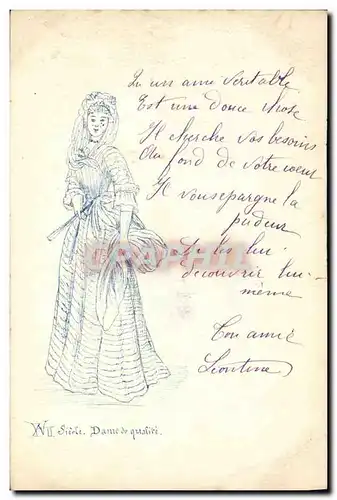 Qu un ami veritable
Est une douce chose
Il cherche vos besoins
Au fond de votre coeur
Il vous epargne la
pudeur
De les lui
decouvrir lui-
même
Ton amie
Leontine
XVII Siècle. Dame de qualité.
CPRPHIL